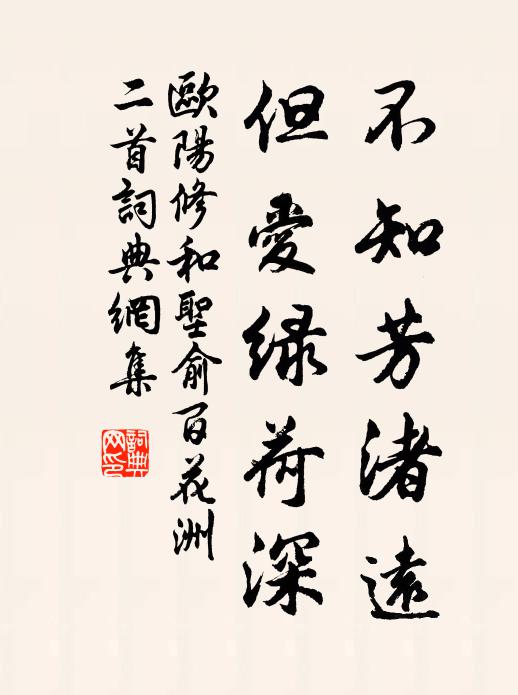 不知芳渚遠
但愛緑荷深
歐陽修和聖俞百花洲
二首詞典網集
詞典
网印